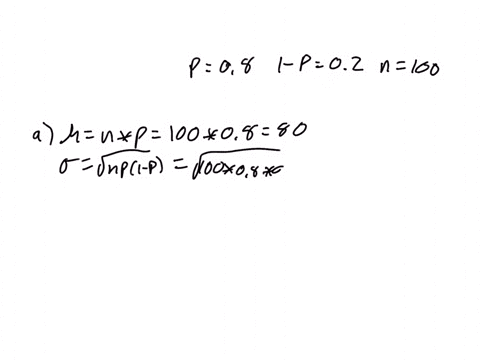 P=0.8 1-P=0.2 n=100
a) μ=n*p=100*0.8=80
σ=√np(1-p)=√100*0.8*